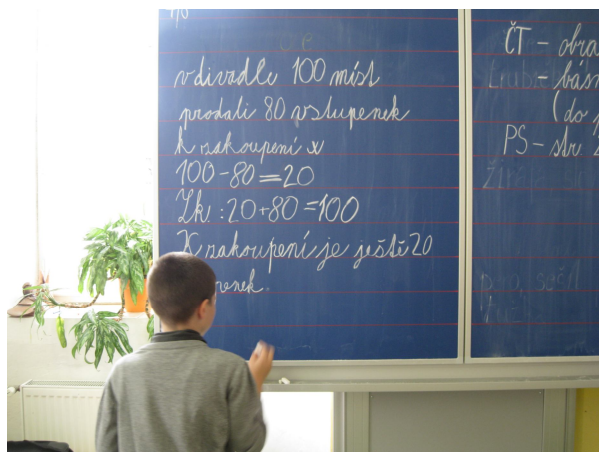 v divadle 100 míst
prodali 80 vstupenek
k zakoupení x
100-80=20
Zk: :20+80=100
K zakoupení je ještě 20
enek.
ČT - obra
- bás
(do
PS - str.